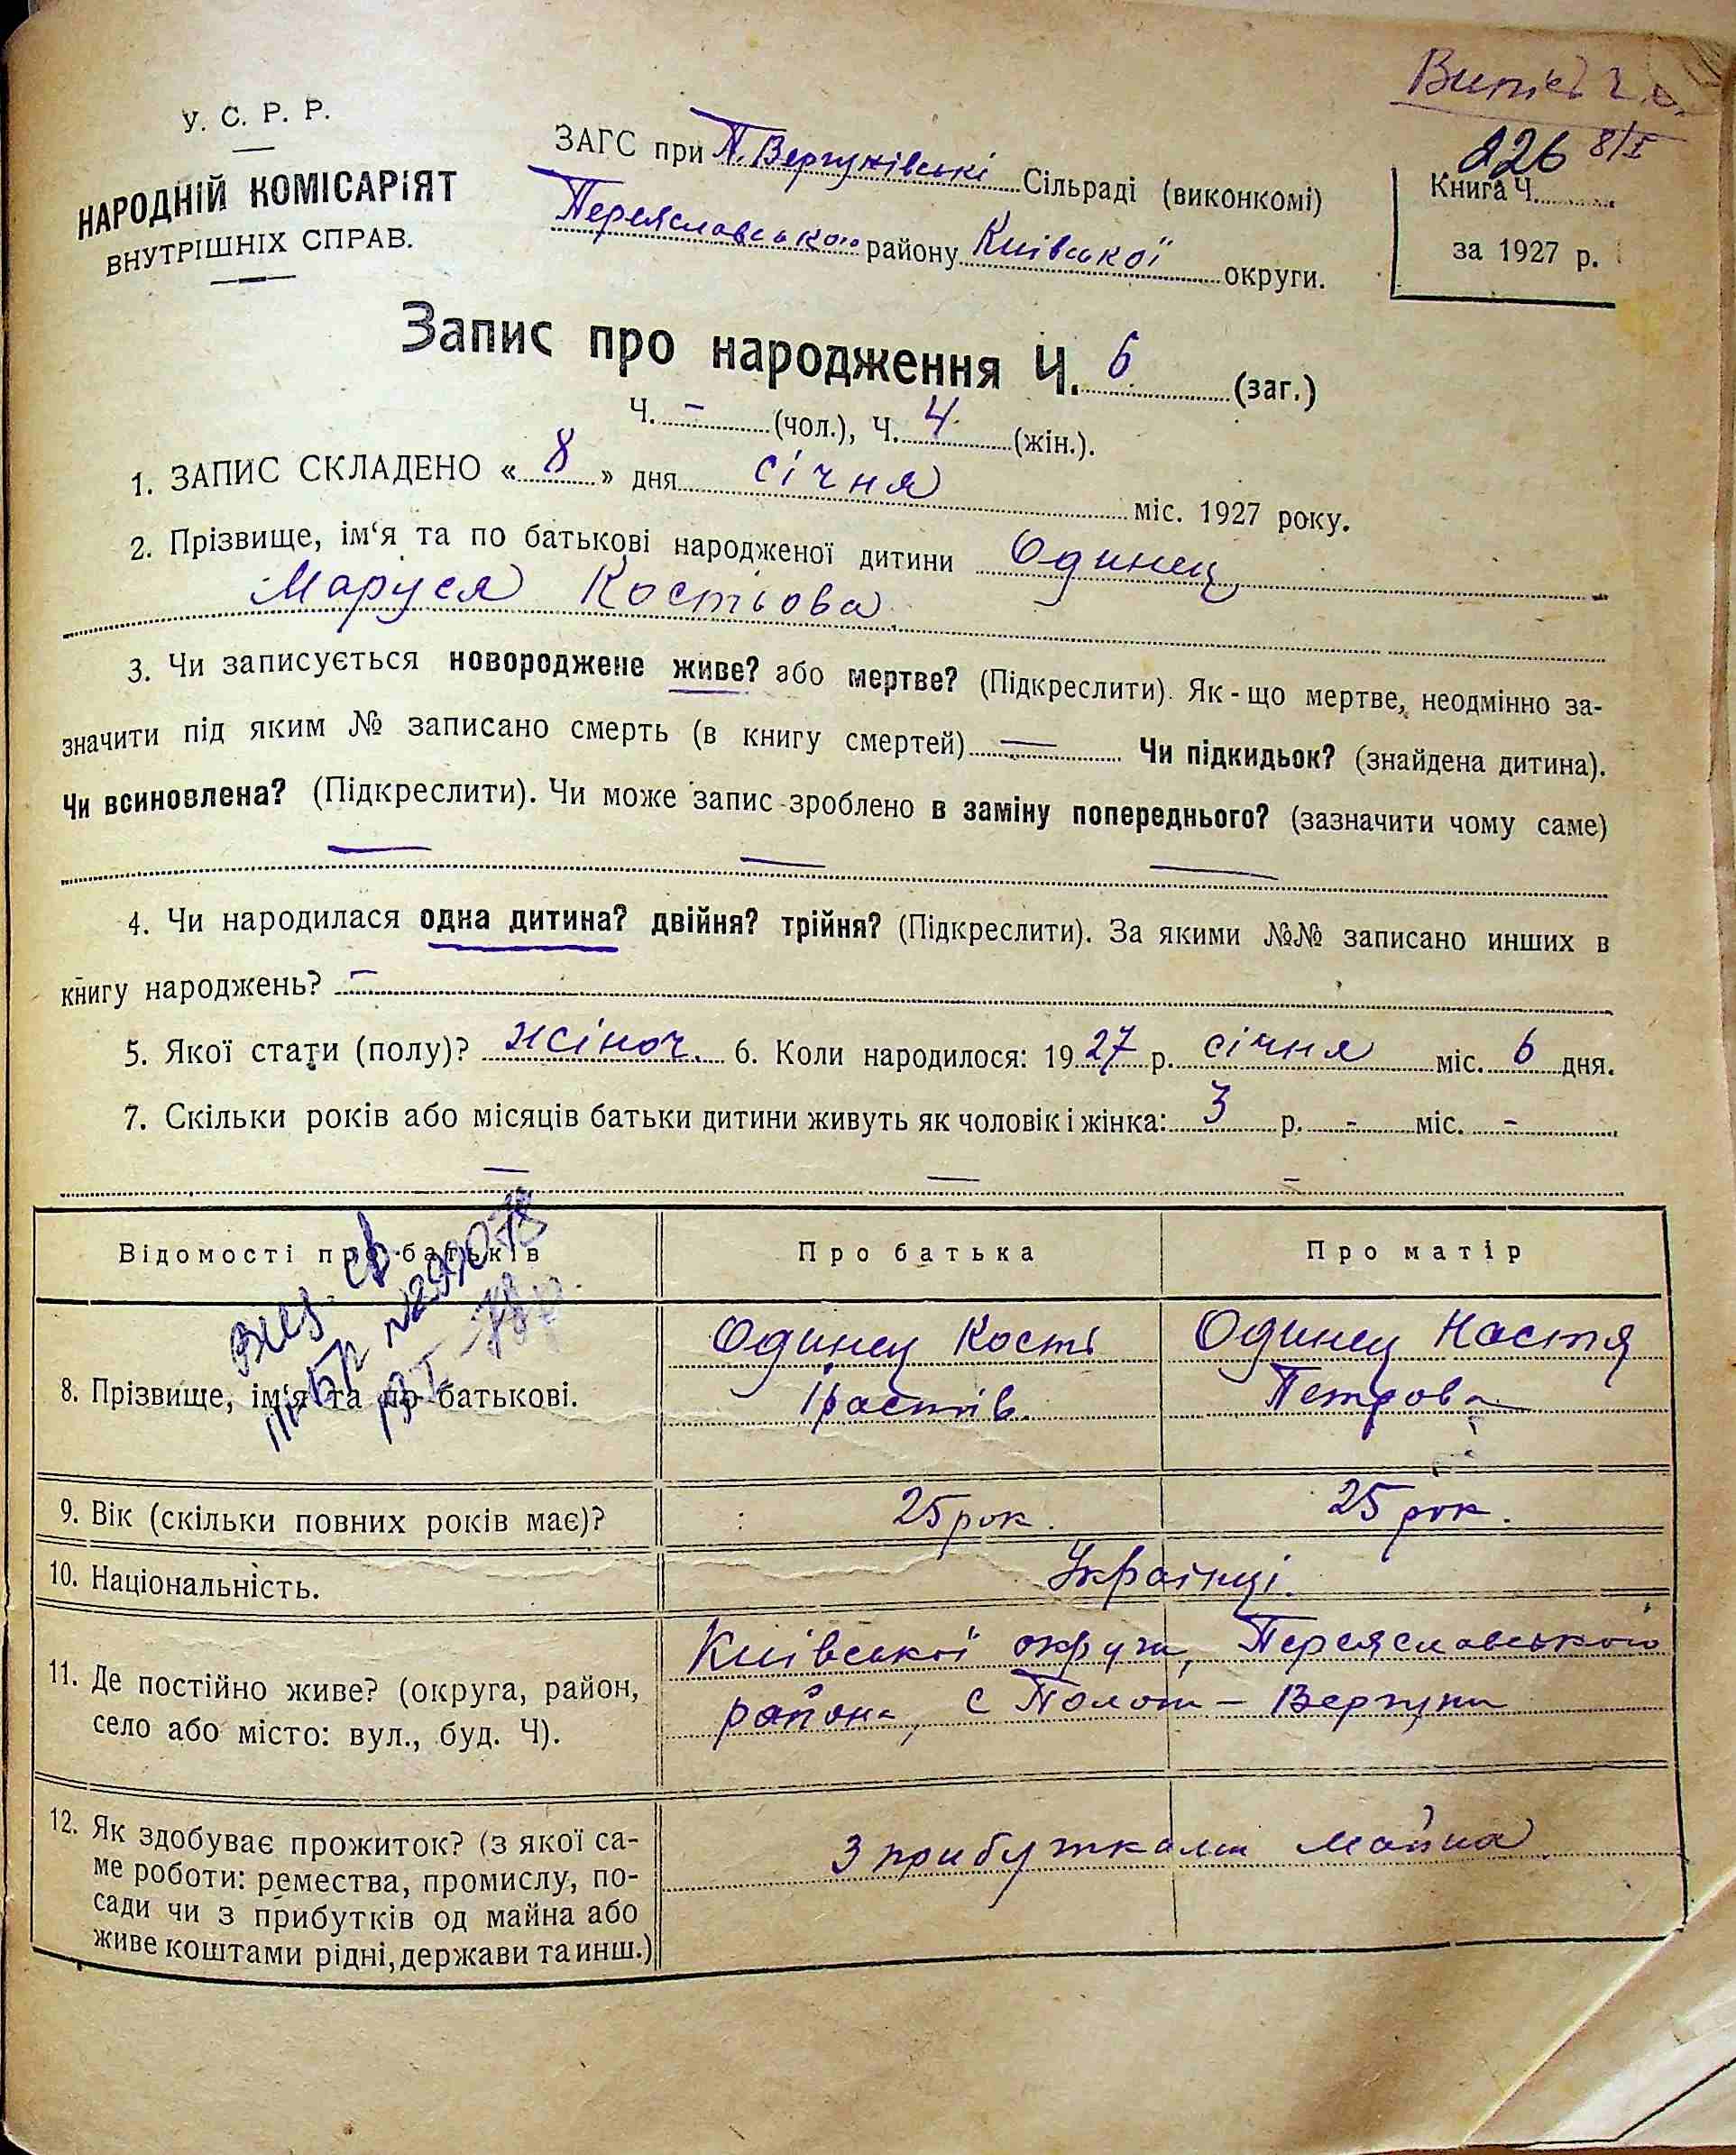 Випис
8/I
У. С. Р. Р.
НАРОДНІЙ КОМІСАРІЯТ
ВНУТРІШНІХ СПРАВ.
ЗАГС при П. Вергунівські Сільраді (виконкомі)
Переяславського району Київської округи.
226
Книга Ч.
за 1927 р.
Запис про народження Ч. 6 (заг.)
Ч. – (чол.), Ч. 4 (жін.).
1. ЗАПИС СКЛАДЕНО « 8 » дня січня міс. 1927 року.
2. Прізвище, ім‘я та по батькові народженої дитини Одинец
Маруся Костьова
3. Чи записується новороджене живе? або мертве? (Підкреслити). Як-що мертве, неодмінно за-
значити під яким № записано смерть (в книгу смертей) — Чи підкидьок? (знайдена дитина).
Чи всиновлена? (Підкреслити). Чи може запис зроблено в заміну попереднього? (зазначити чому саме)
— — —
4. Чи народилася одна дитина? двійня? трійня? (Підкреслити). За якими №№ записано инших в
книгу народжень? –
5. Якої стати (полу)? жіноч. 6. Коли народилося: 1927 р. січня міс. 6 дня.
7. Скільки років або місяців батьки дитини живуть як чоловік і жінка: 3 р. - міс. -
— — –
Відомості про батьків Про батька Про матір
8. Прізвище, ім‘я та по батькові.
Одинец Кость Одинец Настя
Петрова
9. Вік (скільки повних років має)? 25 рок. 25 рок.
10. Національність. Українці.
11. Де постійно живе? (округа, район,
село або місто: вул., буд. Ч).
Київської округи, Переяславського
района, с Полог – Вергуни
12. Як здобуває прожиток? (з якої са-
ме роботи: ремества, промислу, по-
сади чи з прибутків од майна або
живе коштами рідні, держави та инш.)
З прибутками майна